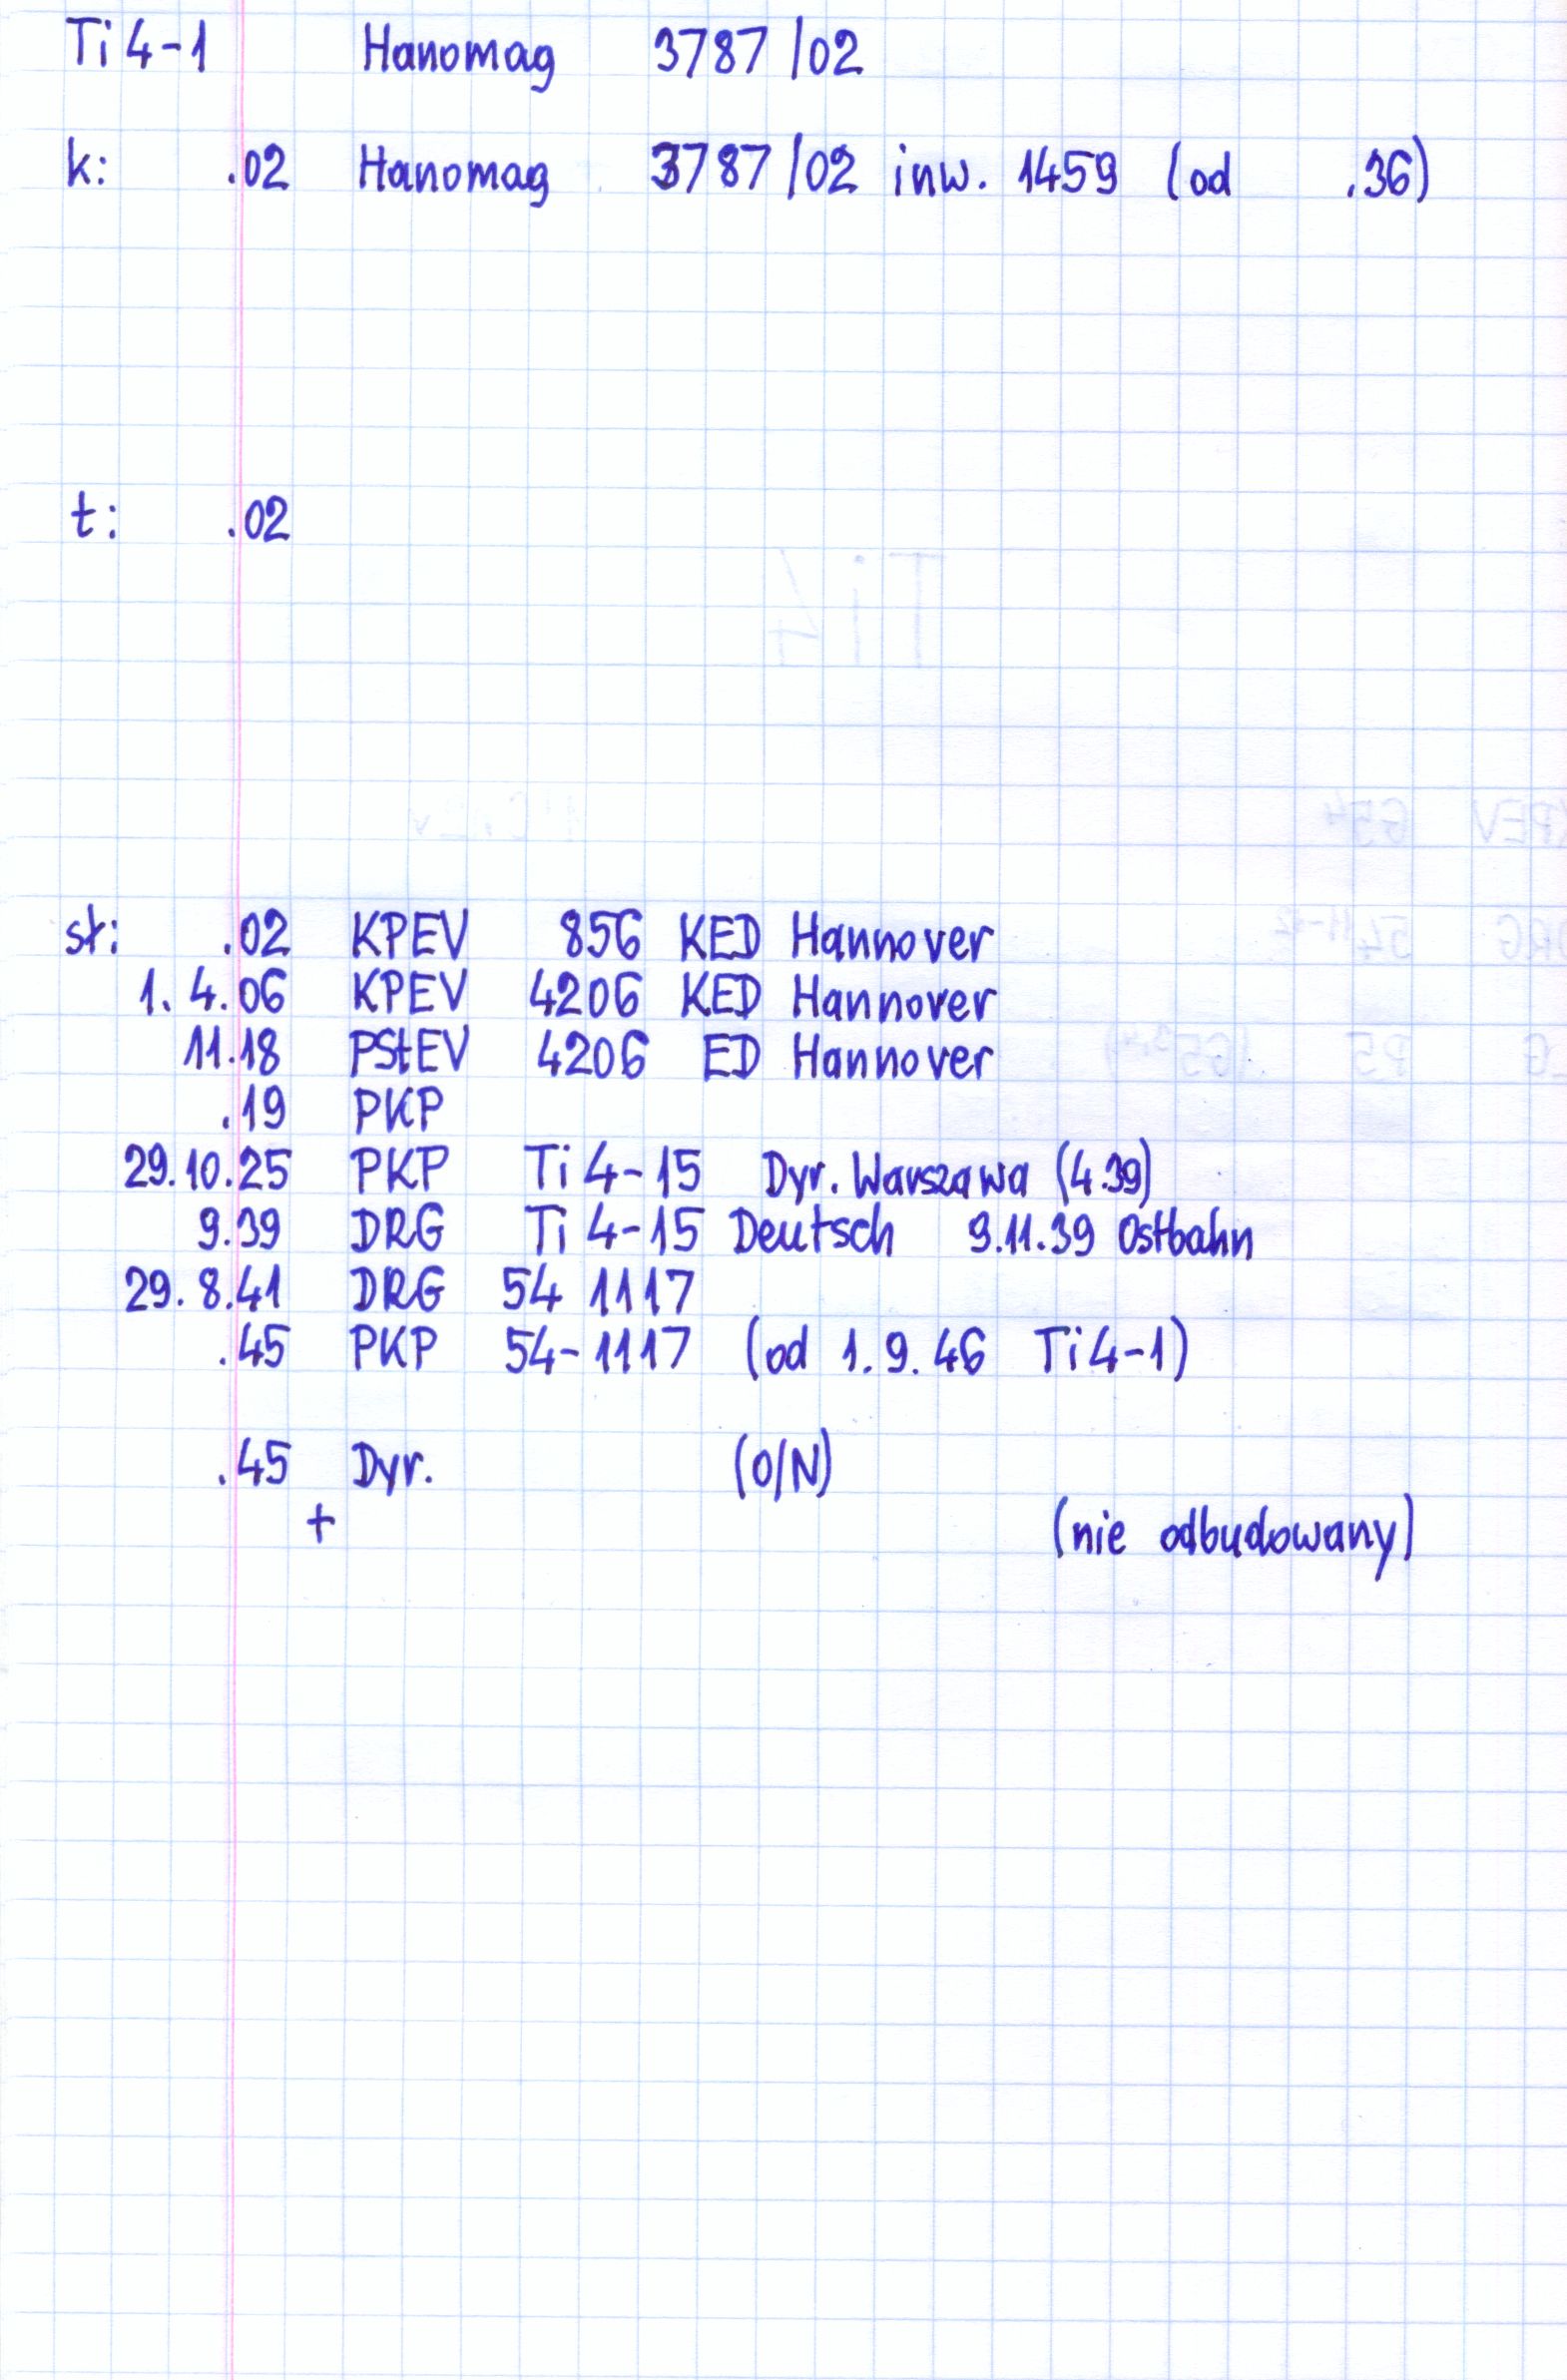 Ti4-1 Hanomag 3787/02
k: .02 Hanomag 3787/02 inw. 1459 (od .36)
t: .02
st: .02 KPEV 856 KED Hannover
1.4.06 KPEV 4206 KED Hannover
11.18 PStEV 4206 ED Hannover
.19 PKP
29.10.25 PKP Ti4-15 Dyr. Warszawa (4.39)
9.39 DRG Ti4-15 Deutsch 9.11.39 Ostbahn
29.8.41 DRG 54 1117
.45 PKP 54-1117 (od 1.9.46 Ti4-1)
.45 Dyr. (O/N)
+ (nie odbudowany)